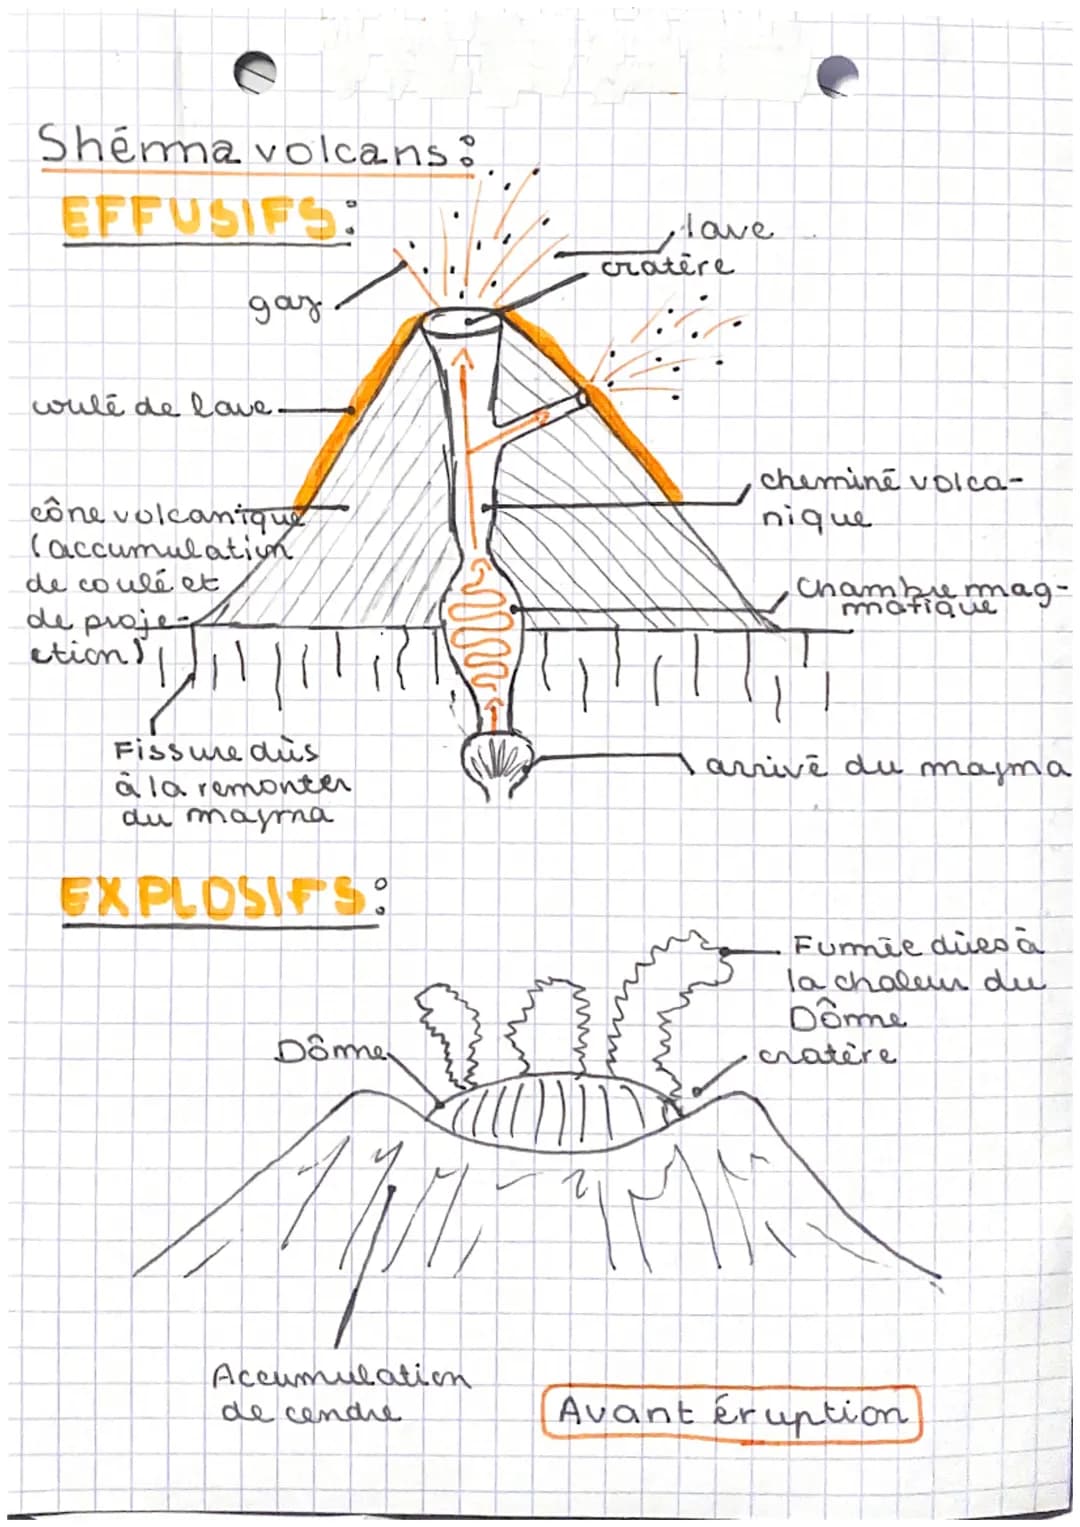 Shéma volcans :
EFFUSIFS :
lave
cratère
gaz
coulé de lave
cheminé volca-
nique
cône volcanique
(accumulation
de coulé et
de proje-
ction)
Chambre mag-
matique
Fissure dùs
à la remonter
du magma
arrivé du magma
EXPLOSIFS :
Fumée dùes à
la chaleur du
Dôme
Dôme
cratère
Accumulation
de cendre
Avant éruption